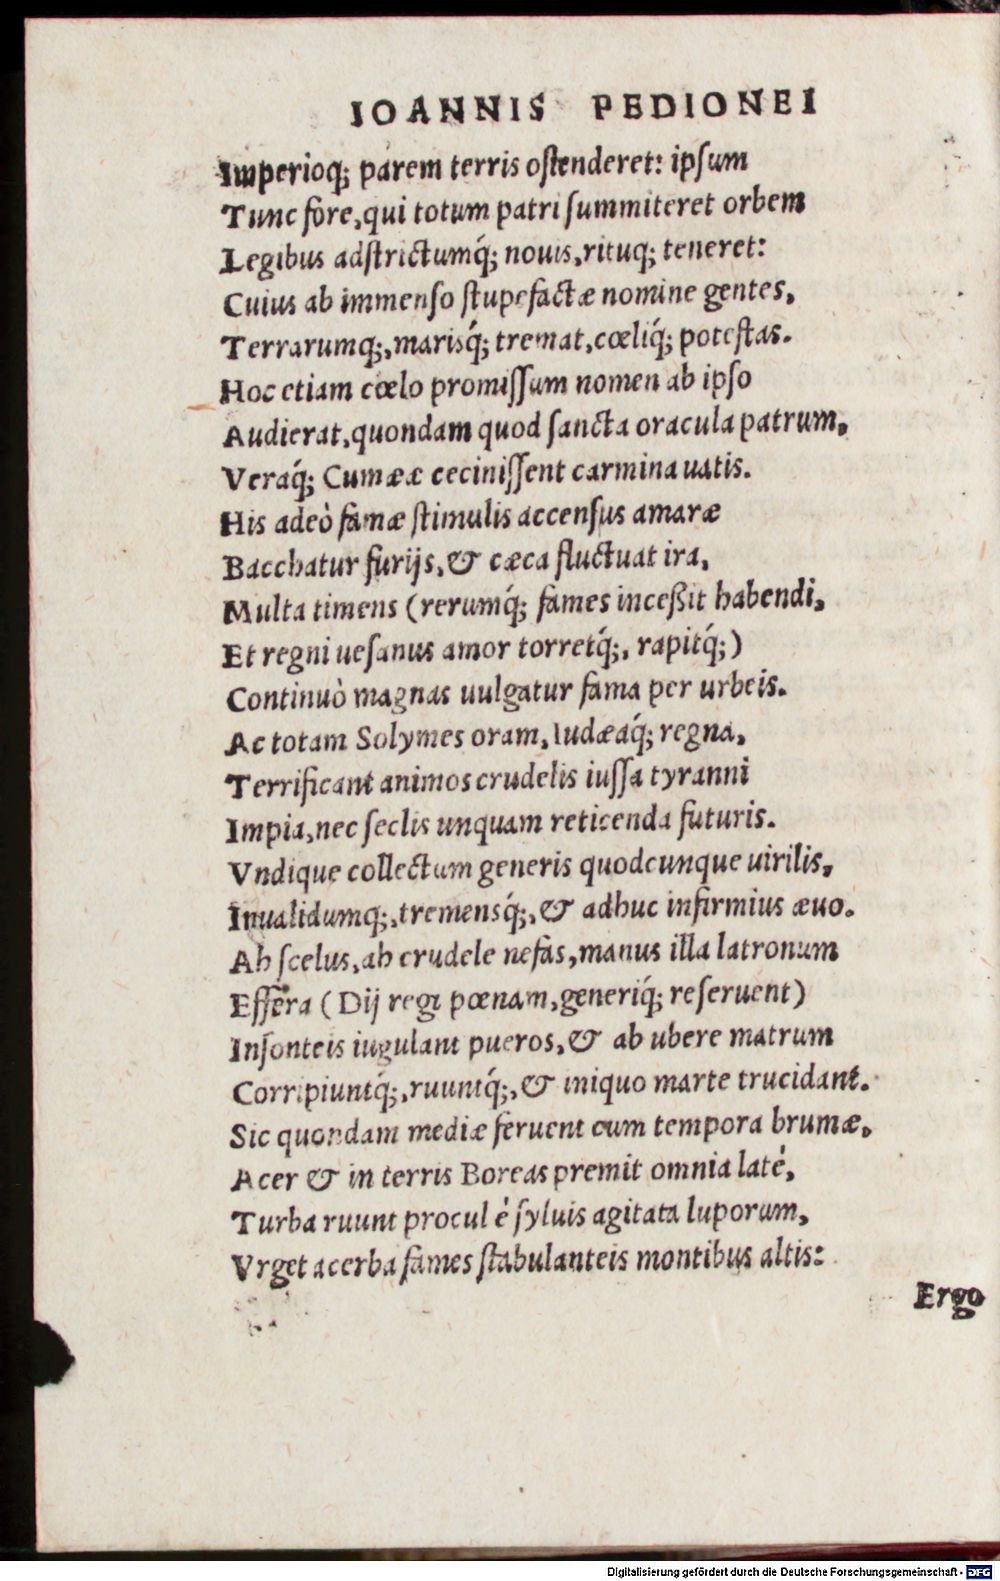 IOANNIS PEDIONEI
Imperioq; parem terris ostenderet: ipsum
Tunc fore, qui totum patri summiteret orbem
Legibus adstrictumq́; nouis, rituq; teneret:
Cuius ab immenso stupefactæ nomine gentes,
Terrarumq;, marisq́; tremat, cœliq́; potestas.
Hoc etiam cœlo promissum nomen ab ipso
Audierat, quondam quod sancta oracula patrum,
Veraq́; Cumææ cecinissent carmina uatis.
His adeò famæ stimulis accensus amaræ
Bacchatur furijs, & cæca fluctuat ira,
Multa timens (rerumq́; fames inceßit habendi,
Et regni uesanus amor torretq́;, rapitq́;)
Continuò magnas uulgatur fama per urbeis.
Ac totam Solymes oram, Iudæaq́; regna,
Terrificant animos crudelis iussa tyranni
Impia, nec seclis unquam reticenda futuris.
Vndique collectum generis quodcunque uirilis,
Inualidumq;, tremensq́;, & adhuc infirmius æuo.
Ah scelus, ah crudele nefas, manus illa latronum
Effera (Dij regi pœnam, generiq́; reseruent)
Insonteis iugulant pueros, & ab ubere matrum
Corripiuntq́;, ruuntq́;, & iniquo marte trucidant.
Sic quondam mediæ feruent cum tempora brumæ,
Acer & in terris Boreas premit omnia laté,
Turba ruunt procul è syluis agitata luporum,
Vrget acerba fames stabulanteis montibus altis:
Ergo
Digitalisierung gefördert durch die Deutsche Forschungsgemeinschaft - DFG